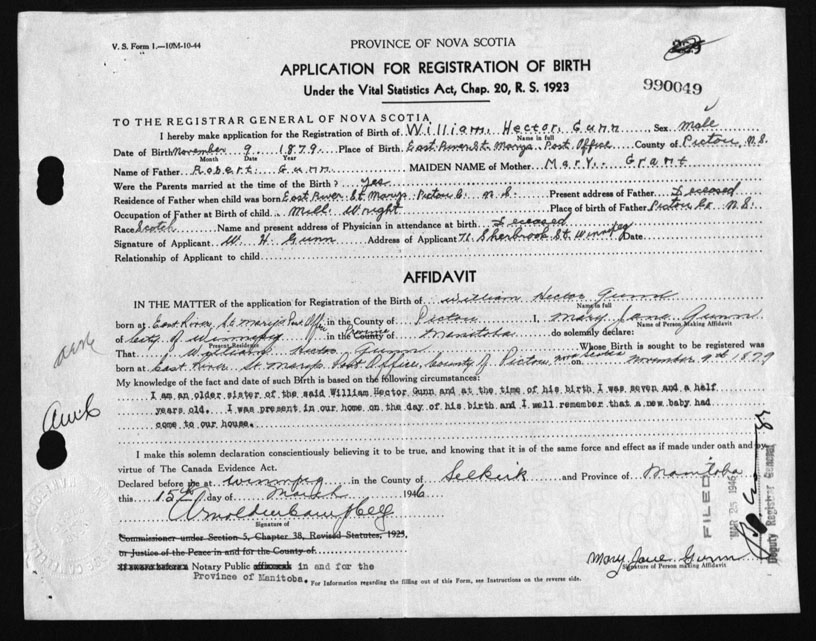 V. S. Form 1.—10M-10-44
PROVINCE OF NOVA SCOTIA
APPLICATION FOR REGISTRATION OF BIRTH
Under the Vital Statistics Act, Chap. 20, R. S. 1923
990049
TO THE REGISTRAR GENERAL OF NOVA SCOTIA
I hereby make application for the Registration of Birth of William Hector Gunn Sex Male
Name in full
Date of Birth November 9 1879 Place of Birth East River St. Marys Post Office County of Pictou N.S.
Month Date Year
Name of Father Robert Gunn MAIDEN NAME of Mother Mary Grant
Were the Parents married at the time of the Birth? yes
Residence of Father when child was born East River St Marys Pictou C. N.S. Present address of Father Deceased
Occupation of Father at Birth of child Mill Wright Place of birth of Father Pictou Co N.S.
Race Scotch Name and present address of Physician in attendance at birth Deceased
Signature of Applicant W. H Gunn Address of Applicant 71 Sherbrook St Winnipeg Date
Relationship of Applicant to child
AFFIDAVIT
IN THE MATTER of the application for Registration of the Birth of William Hector Gunn
Name in full
born at East River St Marys Post Office in the County of Pictou I, Mary Jane Gunn
Name of Person Making Affidavit
of City of Winnipeg in the County of Province Manitoba do solemnly declare:
Present Residence
That William Hector Gunn Whose Birth is sought to be registered was
born at East River St Marys Post Office County of Pictou Nova Scotia on November 9th 1879
My knowledge of the fact and date of such Birth is based on the following circumstances:
I am an older sister of the said William Hector Gunn and at the time of his birth I was seven and a half
years old. I was present in our home on the day of his birth and I well remember that a new baby had
come to our house.
I make this solemn declaration conscientiously believing it to be true, and knowing that it is of the same force and effect as if made under oath and by
virtue of The Canada Evidence Act.
Declared before me at Winnipeg in the County of Selkirk and Province of Manitoba
this 15th day of March 1946
Signature of
Commissioner under Section 5, Chapter 38, Revised Statutes, 1923,
or Justice of the Peace in and for the County of
Notary Public in and for the
Province of Manitoba.
Mary Jane Gunn
Signature of Person making Affidavit
For Information regarding the filling out of this Form, see Instructions on the reverse side.
FILED
MAR 25 1946
Deputy Registrar General